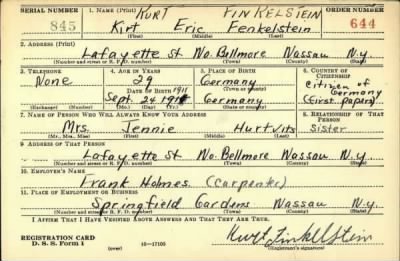 SERIAL NUMBER 1. NAME (Print) KURT FINKELSTEIN ORDER NUMBER
845 Kirt Eric Fenkelstein 644
(First) (Middle) (Last)
2. ADDRESS (Print)
Lafayette St No. Bellmore Nassau N.Y.
(Number and street or R. F. D. number) (Town) (County) (State)
3. TELEPHONE 4. AGE IN YEARS 5. PLACE OF BIRTH 6. COUNTRY OF CITIZENSHIP
None 29 Germany Citizen of
DATE OF BIRTH (Town or county) Germany
1911
Sept. 24 1911 Germany (First papers)
(Exchange) (Number) (Mo.) (Day) (Yr.) (State or country)
7. NAME OF PERSON WHO WILL ALWAYS KNOW YOUR ADDRESS 8. RELATIONSHIP OF THAT PERSON
Mrs. Jennie Hurtvits Sister
(Mr., Mrs., Miss) (First) (Middle) (Last)
9. ADDRESS OF THAT PERSON
Lafayette St No. Bellmore Nassau N.Y.
(Number and street or R. F. D. number) (Town) (County) (State)
10. EMPLOYER'S NAME
Frank Holmes (Carpenter)
11. PLACE OF EMPLOYMENT OR BUSINESS
Springfield Gardens Nassau N.Y.
(Number and street or R. F. D. number) (Town) (County) (State)
I AFFIRM THAT I HAVE VERIFIED ABOVE ANSWERS AND THAT THEY ARE TRUE.
REGISTRATION CARD
D. S. S. Form 1 (over) 16—17105 Kurt Finkelstein
(Registrant's signature)